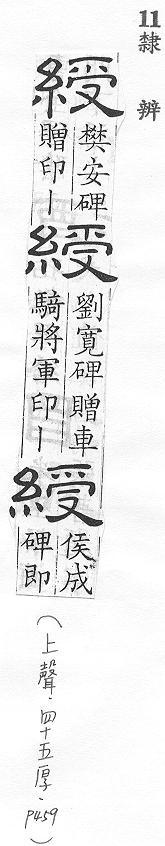 11隸辨
綬
樊安碑
贈印丨
綬
劉寬碑贈車
騎將軍印丨
綬
侯成
碑即
(上聲·四十五厚·P459)